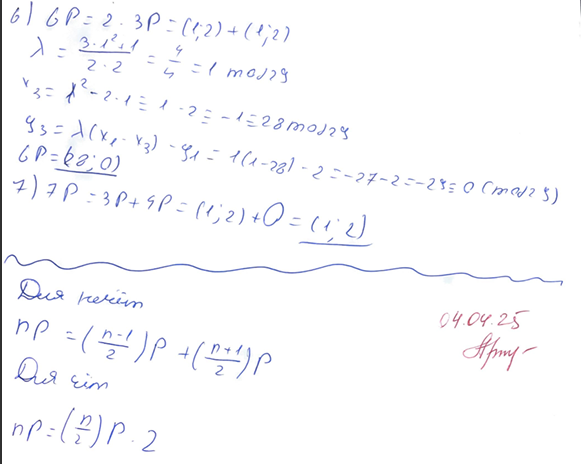 6) 6P = 2 · 3P = (1; 2) + (1; 2)
λ = (3·1²+1)/(2·2) = 4/4 = 1 mod 29
x₃ = λ² - 2·1 ≡ 1 - 2 ≡ -1 ≡ 28 mod 29
y₃ = λ(x₁ - x₃) - y₁ = 1(1-28) - 2 = -27-2 = -29 ≡ 0 (mod 29)
6P = (28; 0)
7) 7P = 3P + 4P = (1; 2) + O = (1; 2)
Для нечёт
nP = ((n-1)/2)P + ((n+1)/2)P
04.04.25
Для чёт
nP = (n/2)P · 2